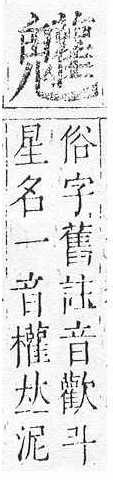 俗字舊註音歡斗
星名一音權𠀤泥